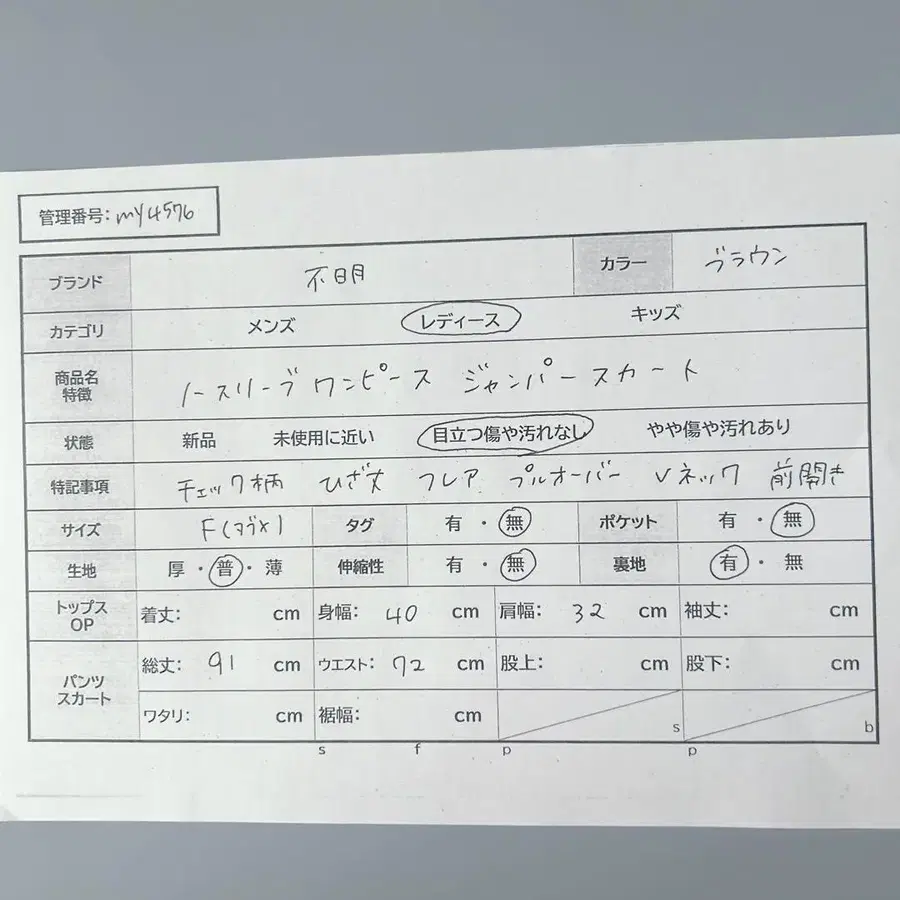 管理番号: my4576
ブランド 不明 カラー ブラウン
カテゴリ メンズ レディース キッズ
商品名 特徴 ノースリーブワンピース ジャンパースカート
状態 新品 未使用に近い 目立つ傷や汚れなし やや傷や汚れあり
特記事項 チェック柄 ひざ丈 フレア プルオーバー Vネック 前開き
サイズ F(タグ×) タグ 有・無 ポケット 有・無
生地 厚・普・薄 伸縮性 有・無 裏地 有・無
トップス OP 着丈: cm 身幅: 40 cm 肩幅: 32 cm 袖丈: cm
パンツ スカート 総丈: 91 cm ウエスト: 72 cm 股上: cm 股下: cm
ワタリ: cm 裾幅: cm s b
s f p p